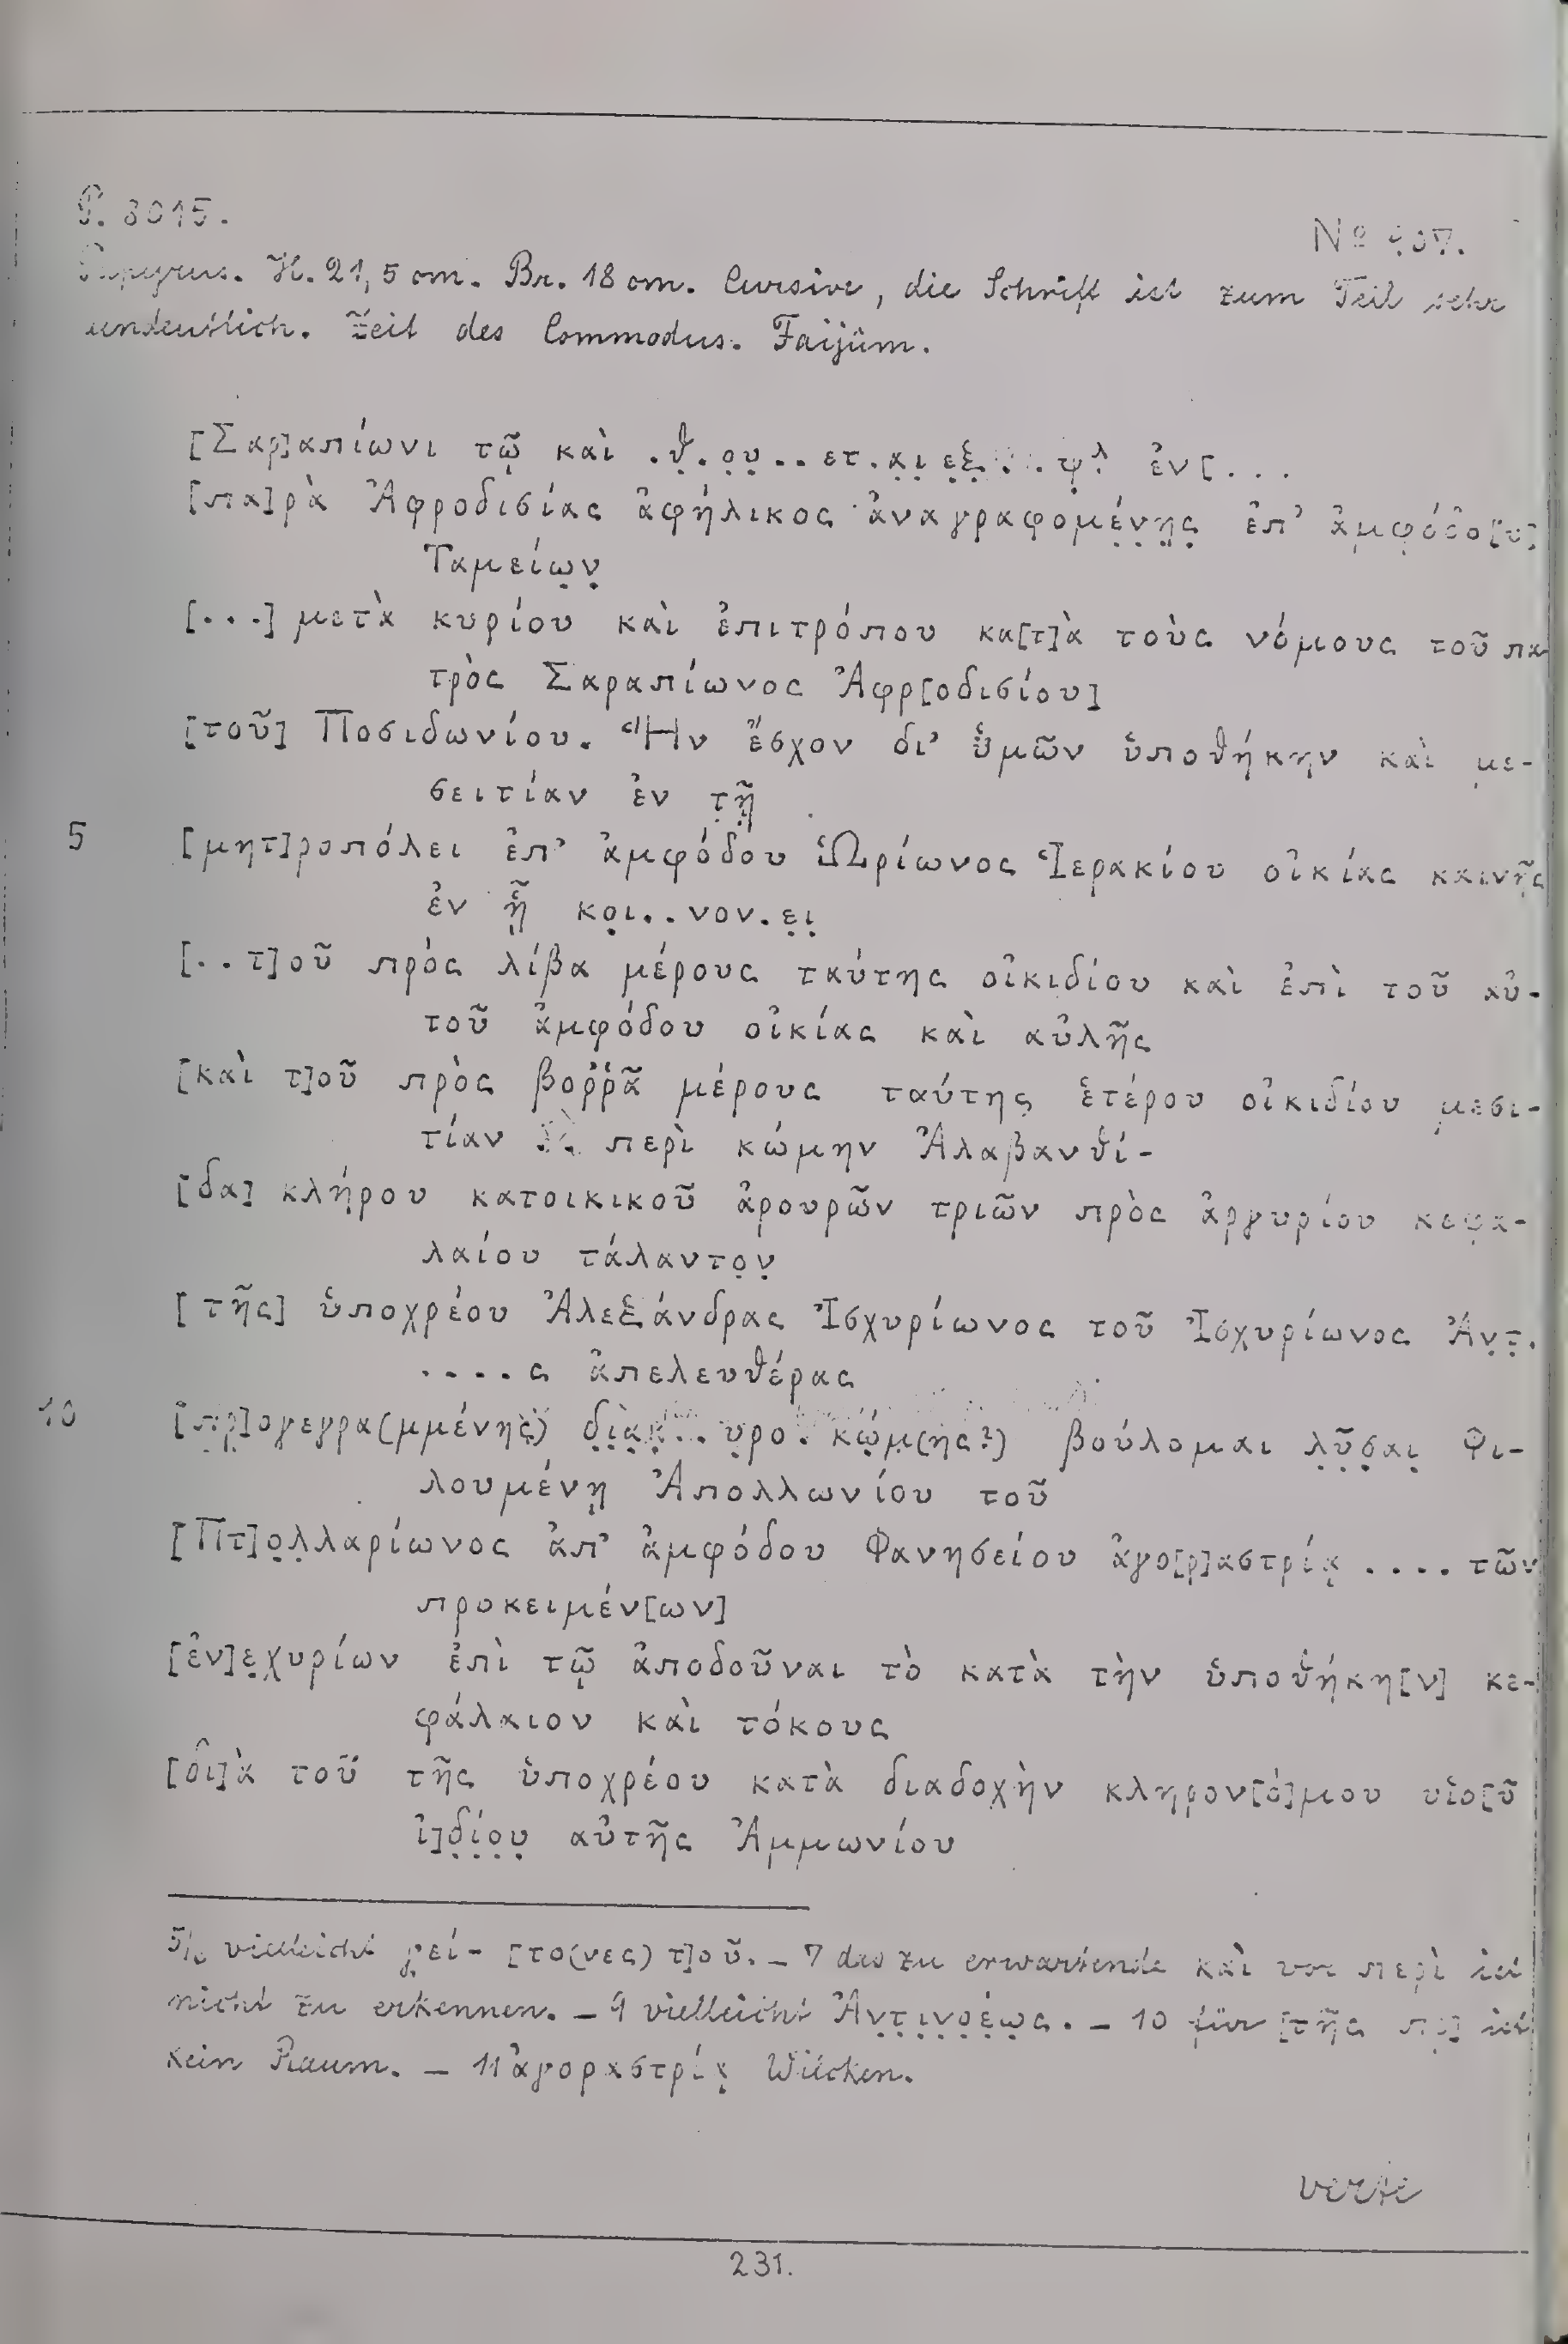 P. 8015.
No 907.
Papyrus. H. 21,5 cm. Br. 18 cm. Cursive, die Schrift ist zum Teil sehr
undeutlich. Zeit des Commodus. Faijûm.
[Σαρ]απίωνι τῷ καὶ .θ̣.ο̣υ̣..ετ.α̣ι̣ ε̣ξ̣ ἐν[...
[πα]ρὰ Ἀφροδισίας ἀφήλικος ἀναγραφομέ̣ν̣η̣ς̣ ἐπ' ἀμφόδο[υ]
Ταμείω̣ν̣
[...] μετὰ κυρίου καὶ ἐπιτρόπου κα[τ]ὰ τοὺς νόμους τοῦ πα
τρὸς Σαραπίωνος Ἀφρ[οδισίου]
[τοῦ] Ποσιδωνίου. Ἣν ἔσχον δι' ὑμῶν ὑποθήκην καὶ με-
σειτίαν ἐν τ̣ῇ̣
5 [μητ]ροπόλει ἐπ' ἀμφόδου Ὡρίωνος Ἱερακίου οἰκίας καινῆς
ἐν ᾗ κο̣ι..νον.ε̣ι̣
[..τ]οῦ πρὸς λίβα μέρους ταύτης οἰκιδίου καὶ ἐπὶ τοῦ αὐ-
τοῦ ἀμφόδου οἰκίας καὶ αὐλῆς
[καὶ τ]οῦ πρὸς βορρᾶ μέρους ταύτης ἑτέρου οἰκιδίου μεσι-
τίαν .. περὶ κώμην Ἀλαβανθί-
[δα] κλήρου κατοικικοῦ ἀρουρῶν τριῶν πρὸς ἀργυρίου κεφα-
λαίου τάλαντο̣ν̣
[τῆς] ὑποχρέου Ἀλεξάνδρας Ἰσχυρίωνος τοῦ Ἰσχυρίωνος Ἀν̣τ̣.
....ς ἀπελευθέρας
10 [π̣ρ̣]ογεγρα(μμένης) δ̣ι̣α̣κ̣... υ̣ρο. κώ̣μ̣(ης?) βούλομαι λ̣ῦ̣σ̣αι̣ Φι-
λουμένῃ Ἀπολλωνίου τοῦ
[Πτ]ο̣λ̣λαρίωνος ἀπ' ἀμφόδου Φανησείου ἀγο[ρ]αστρίᾳ .... τῶν
προκειμέν[ων]
[ἐν]ε̣χυρίων ἐπὶ τῷ ἀποδοῦναι τὸ κατὰ τὴν ὑποθήκη[ν] κε-
φάλαιον καὶ τόκους
[δι]ὰ τοῦ τῆς ὑποχρέου κατὰ διαδοχὴν κληρον[ό]μου υἱο[ῦ
ἰ]δ̣ί̣ο̣υ̣ αὐτῆς Ἀμμωνίου
5/6 vielleicht γ̣εί- [το(νες) τ]οῦ. – 7 das zu erwartende καὶ vor περὶ ist
nicht zu erkennen. – 9 vielleicht Ἀν̣τ̣ι̣ν̣ο̣έ̣ω̣ς. – 10 für [τῆς πρ̣] ist
kein Raum. – 11 ἀγοραστρίᾳ Wilcken.
verte
231.